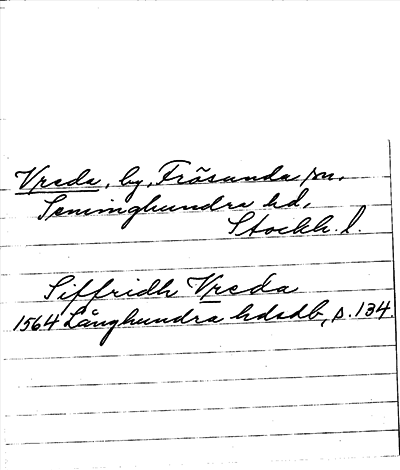 Vreda, by, Frösunda sn,
Seminghundra hd,
Stockh. l.
Siffridh Vreda
1564 Långhundra hdsdb, s. 134.